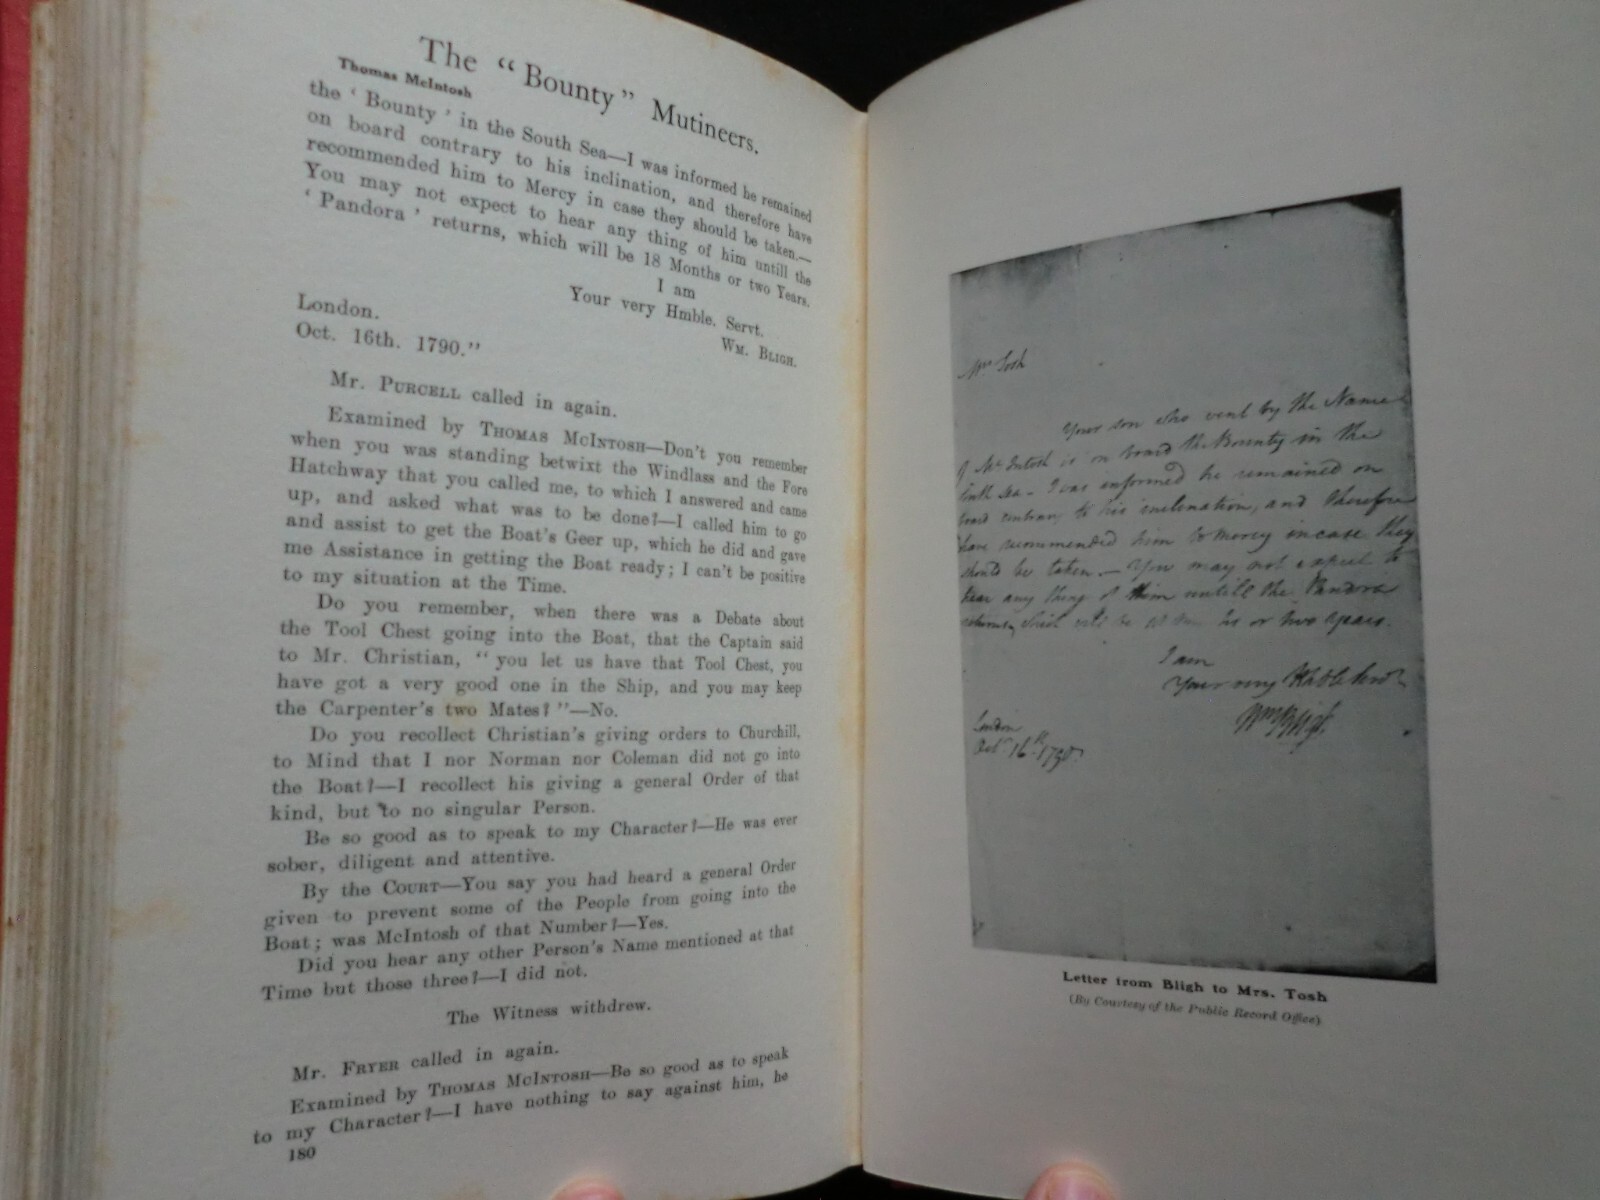 The “Bounty” Mutineers.
Thomas McIntosh
the ‘Bounty’ in the South Sea—I was informed he remained
on board contrary to his inclination, and therefore have
recommended him to Mercy in case they should be taken.—
You may not expect to hear any thing of him untill the
‘Pandora’ returns, which will be 18 Months or two Years.
I am
Your very Hmble. Servt.
WM. BLIGH.
London.
Oct. 16th. 1790.”
Mr. PURCELL called in again.
Examined by THOMAS MCINTOSH—Don't you remember
when you was standing betwixt the Windlass and the Fore
Hatchway that you called me, to which I answered and came
up, and asked what was to be done?—I called him to go
and assist to get the Boat's Geer up, which he did and gave
me Assistance in getting the Boat ready; I can't be positive
to my situation at the Time.
Do you remember, when there was a Debate about
the Tool Chest going into the Boat, that the Captain said
to Mr. Christian, “you let us have that Tool Chest, you
have got a very good one in the Ship, and you may keep
the Carpenter's two Mates?”—No.
Do you recollect Christian's giving orders to Churchill,
to Mind that I nor Norman nor Coleman did not go into
the Boat?—I recollect his giving a general Order of that
kind, but to no singular Person.
Be so good as to speak to my Character?—He was ever
sober, diligent and attentive.
By the COURT—You say you had heard a general Order
given to prevent some of the People from going into the
Boat; was McIntosh of that Number?—Yes.
Did you hear any other Person's Name mentioned at that
Time but those three?—I did not.
The Witness withdrew.
Mr. FRYER called in again.
Examined by THOMAS MCINTOSH—Be so good as to speak
to my Character?—I have nothing to say against him, he
180
Mrs Tosh
Your son who went by the Name
of McIntosh is on board the Bounty in the
South Sea - I was informed he remained on
board contrary to his inclination, and therefore
have recommended him to mercy in case they
should be taken.— You may not expect to
hear any thing of him untill the Pandora
returns, which will be 18 or two Years.
I am
Your very Hble Servt
Wm Bligh.
London
Octr 16th 1790
Letter from Bligh to Mrs. Tosh
(By Courtesy of the Public Record Office)